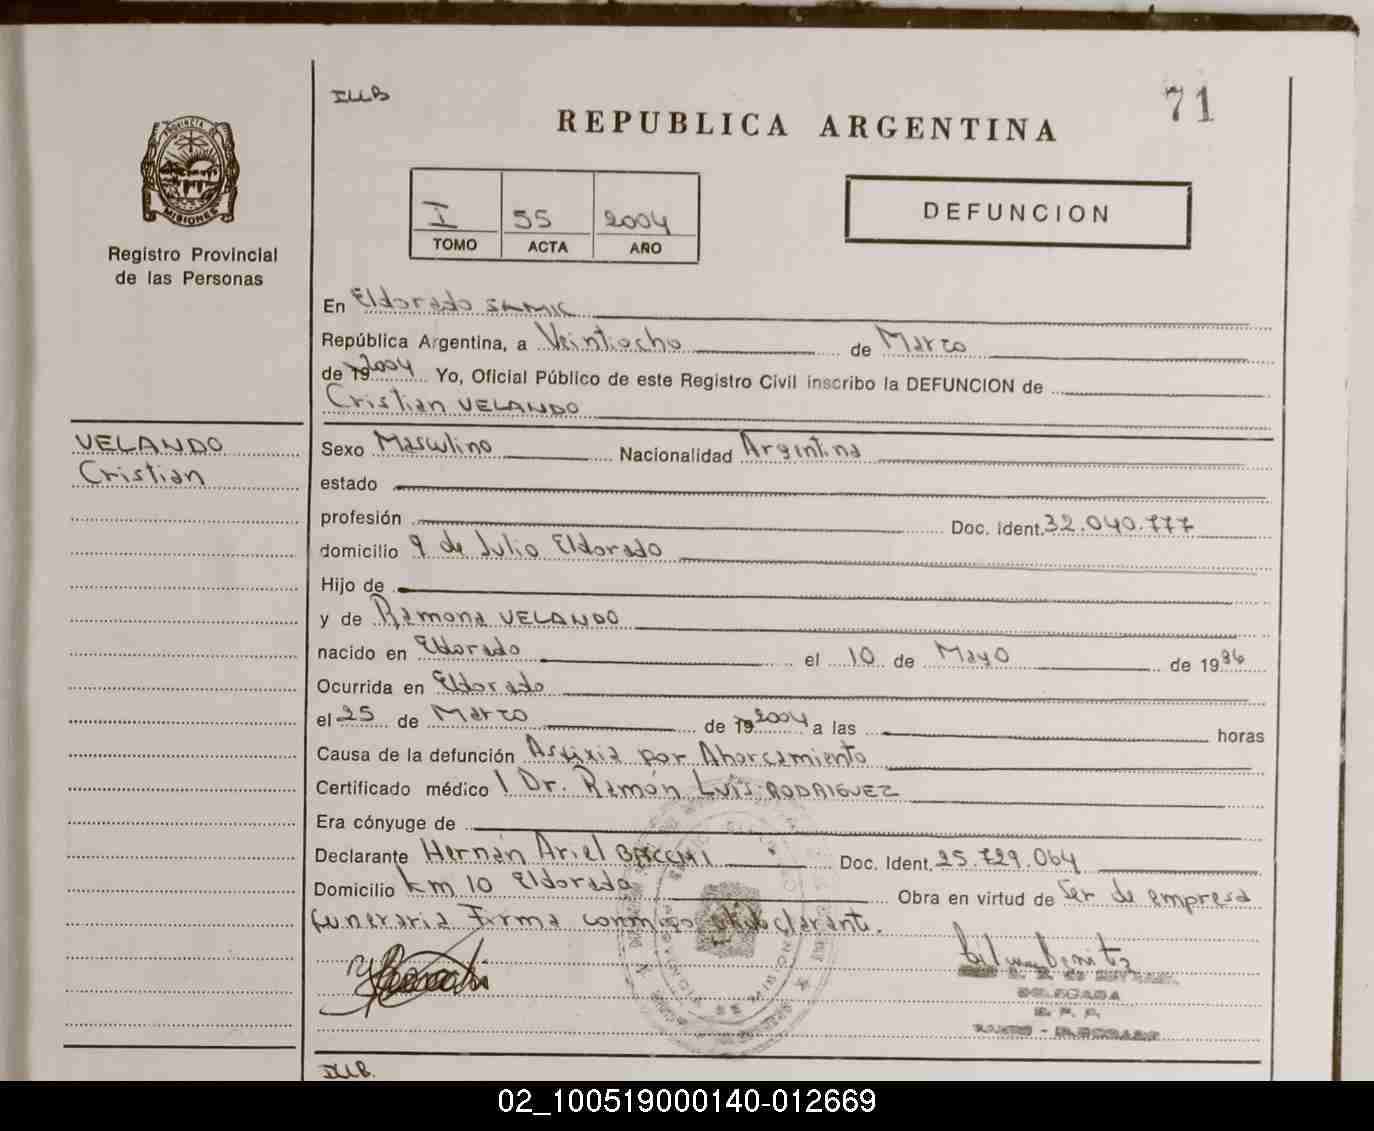 ILLB
71
REPUBLICA ARGENTINA
PROVINCIA DE
MISIONES
Registro Provincial
de las Personas
I 55 2004
TOMO ACTA AÑO
DEFUNCION
En Eldorado SAMIC
República Argentina, a Veintiocho de Marzo
de 19 2004 Yo, Oficial Público de este Registro Civil inscribo la DEFUNCION de
Cristian VELANDO
VELANDO
Cristian
Sexo Masculino Nacionalidad Argentina
estado
profesión Doc. Ident. 32.040.777
domicilio 9 de Julio Eldorado
Hijo de
y de Ramona VELANDO
nacido en Eldorado el 10 de Mayo de 1986
Ocurrida en Eldorado
el 25 de Marzo de 19 2004 a las horas
Causa de la defunción Asfixia por Ahorcamiento
Certificado médico Dr. Ramón Luis RODRIGUEZ
Era cónyuge de
Declarante Hernán Ariel BACCHI Doc. Ident. 25.729.064
Domicilio km 10 Eldorado Obra en virtud de Ser de empresa
funeraria Firma conmigo declarante.
DELEGADA
ILLB.
02_100519000140-012669